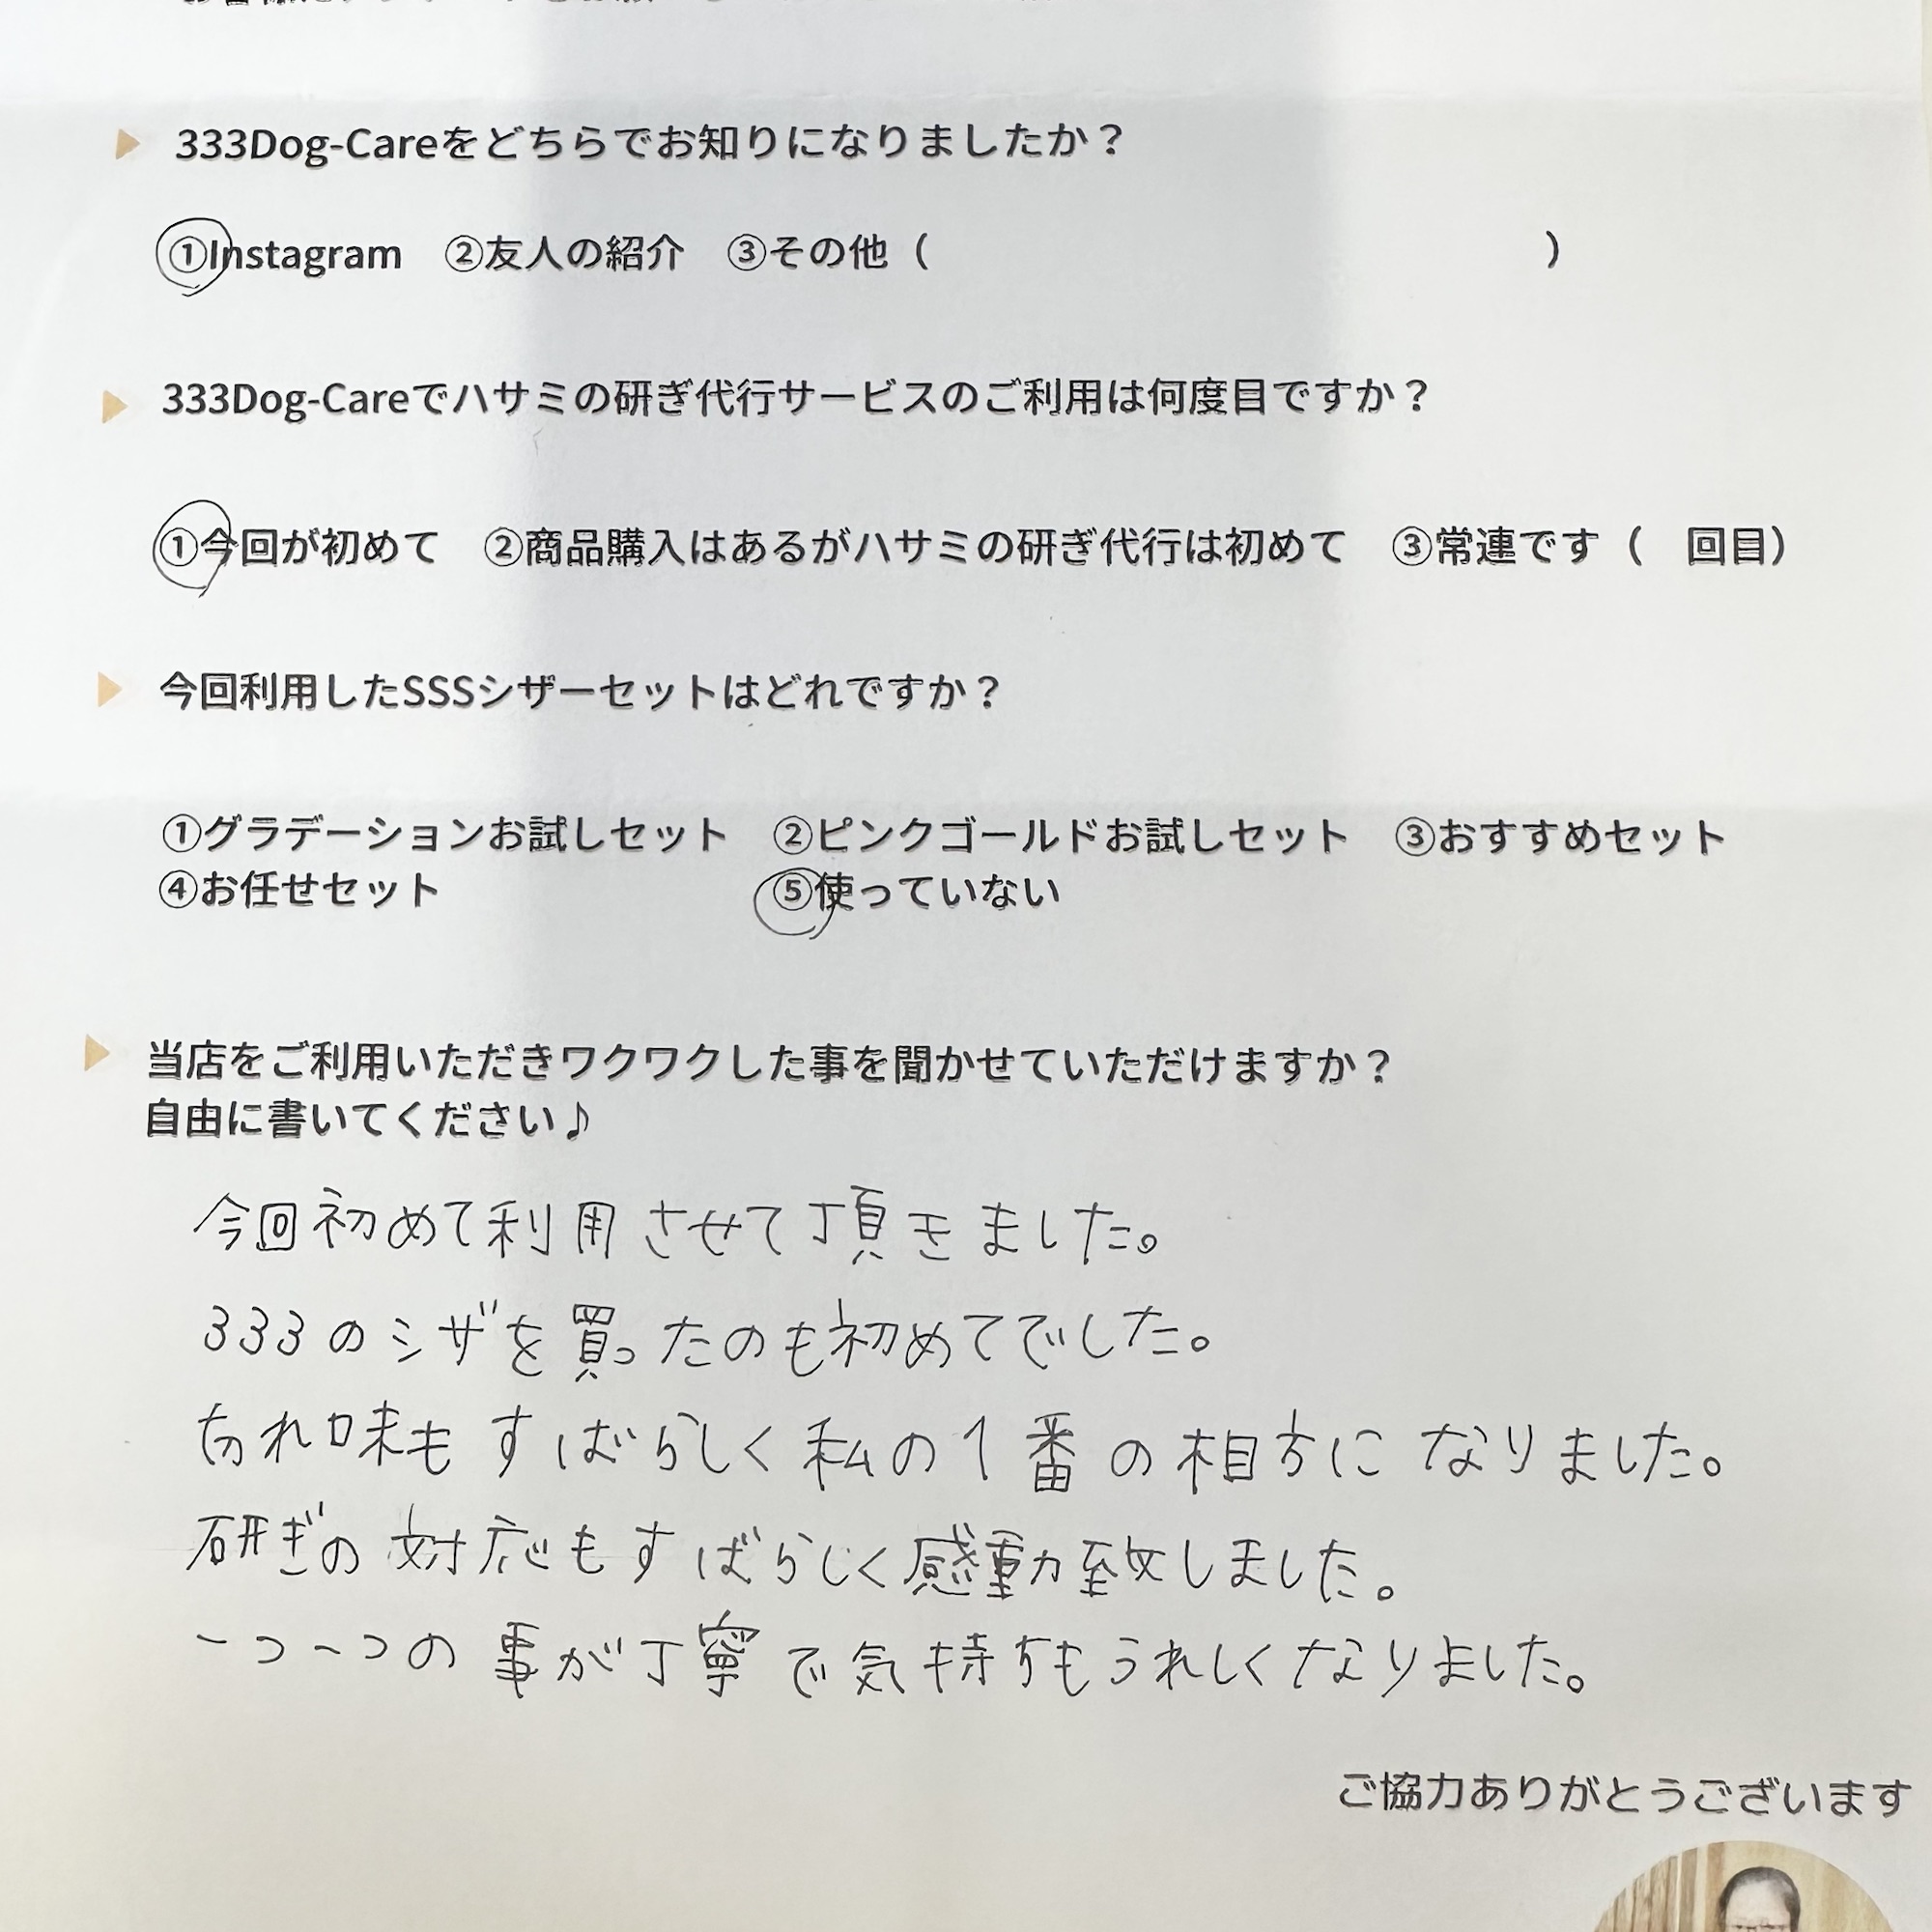 333Dog-Careをどちらでお知りになりましたか？
①Instagram　②友人の紹介　③その他（　　　　　　　　　　　　　　　）
333Dog-Careでハサミの研ぎ代行サービスのご利用は何度目ですか？
①今回が初めて　②商品購入はあるがハサミの研ぎ代行は初めて　③常連です（　回目）
今回利用したSSSシザーセットはどれですか？
①グラデーションお試しセット　②ピンクゴールドお試しセット　③おすすめセット
④お任せセット　⑤使っていない
当店をご利用いただきワクワクした事を聞かせていただけますか？
自由に書いてください♪
今回初めて利用させて頂きました。
333のシザを買ったのも初めてでした。
切れ味もすばらしく私の1番の相方になりました。
研ぎの対応もすばらしく感動致しました。
一つ一つの事が丁寧で気持ちもうれしくなりました。
ご協力ありがとうございます